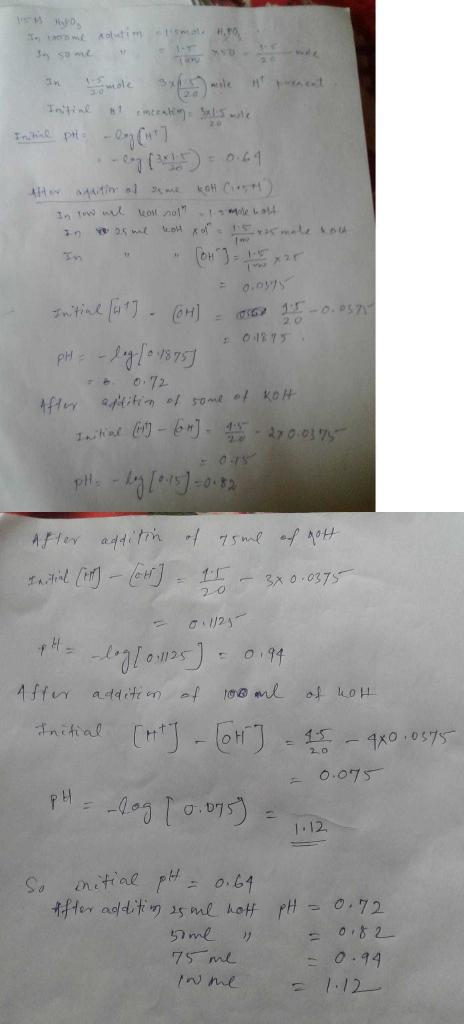 1.5 M H3PO3
In 1000 ml solution = 1.5 mole H3PO3
In 50 ml " = 1.5/1000 × 50 = 1.5/20 mole
In 1.5/20 mole 3×(1.5/20) mole H+ present.
Initial H+ = 3×1.5/20 mole
Initial pH = -log[H+]
= -log(3×1.5/20) = 0.64
After additin of 25 ml KOH (1.5M)
In 25 ml KOH = 1.5/1000 × 25 mole KOH
In " " [OH-] = 1.5/1000 × 25
= 0.0375
Initial [H+] - [OH] = 4.5/20 - 0.0375
= 0.1875
pH = -log[0.1875]
= 0.72
After additin of 50 ml of KOH
Initial [H+] - [OH] = 4.5/20 - 2×0.0375
= 0.15
pH = -log[0.15] = 0.82
After additin of 75 ml of KOH
Initial [H+] - [OH-] = 4.5/20 - 3×0.0375
= 0.1125
pH = -log[0.1125] = 0.94
After addition of 100 ml of KOH
Initial [H+] - [OH-] = 4.5/20 - 4×0.0375
= 0.075
pH = -log[0.075) = 1.12
So initial pH = 0.64
After addition 25 ml KOH pH = 0.72
50 ml " = 0.82
75 ml = 0.94
100 ml = 1.12